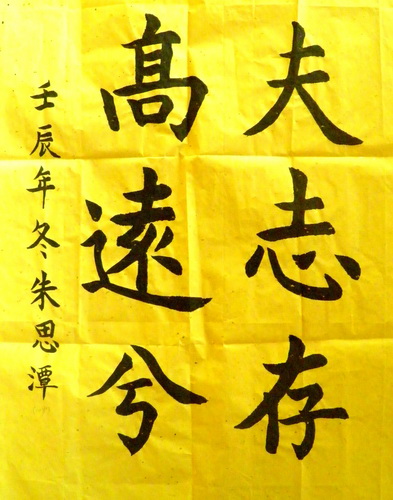 夫志存
髙遠兮
壬辰年冬朱思潭